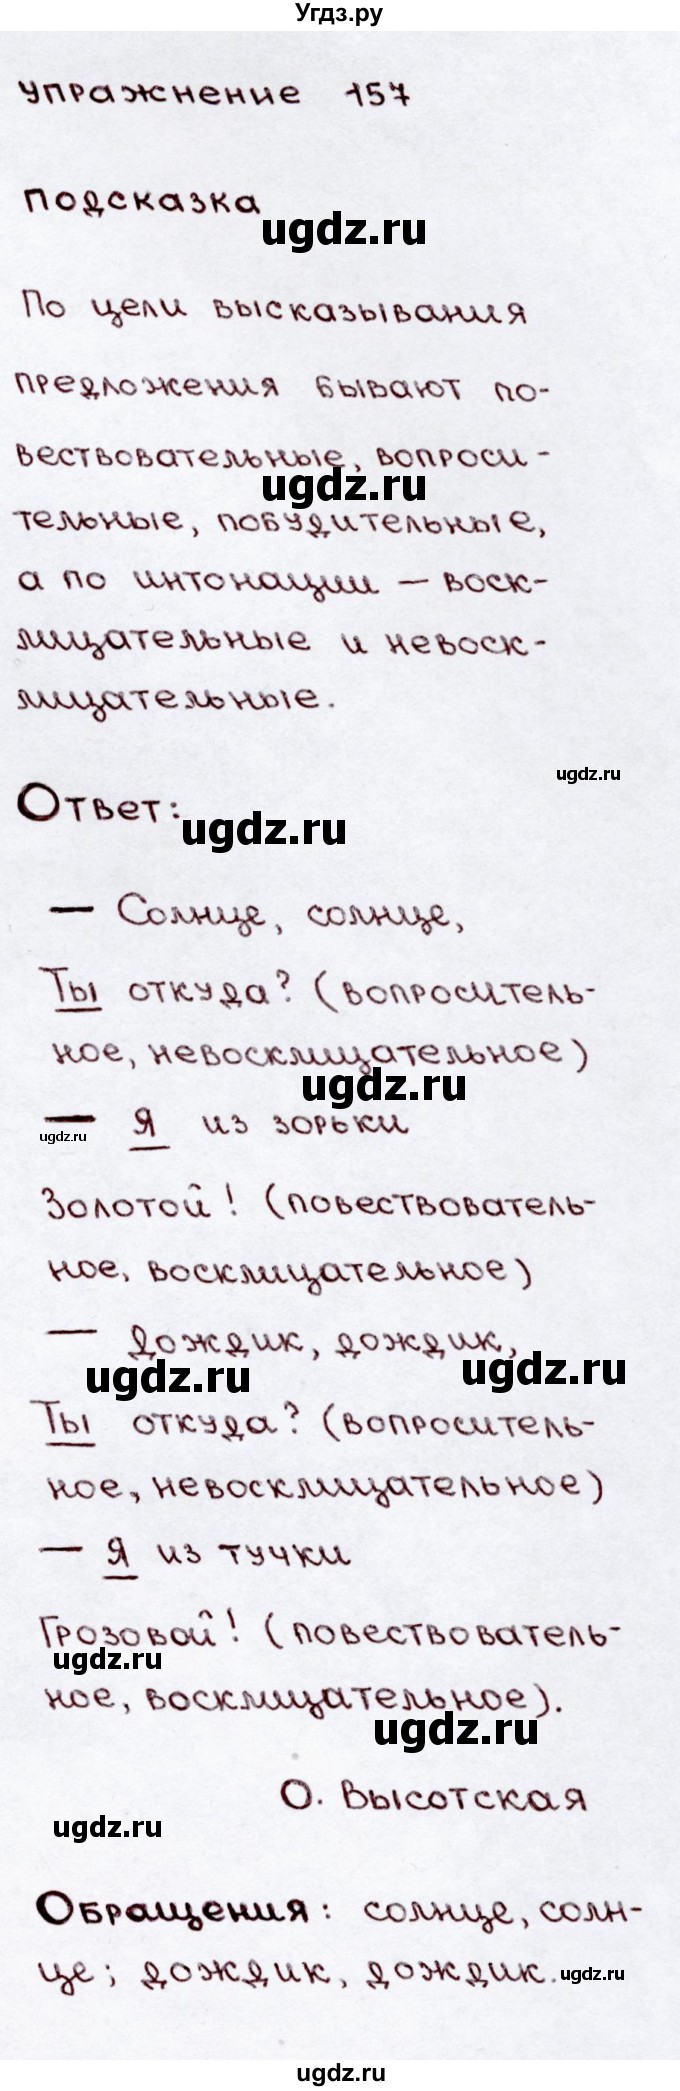 Угдз.ру
упражнение 157
подсказка
ugdz.ru
По цели высказывания
предложения бывают по-
вествовательные, вопроси-
ugdz.ru
тельные, побудительные,
а по интонации – воск-
лицательные и невоск-
лицательные.
ugdz.ru
Ответ:
ugdz.ru
– Солнце, солнце,
Ты откуда? (вопроситель-
ное, невосклицательное)
ugdz.ru
– Я из зорьки
ugdz.ru
Золотой! (повествователь-
ное, восклицательное)
– дождик, дождик,
ugdz.ru
ugdz.ru
Ты откуда? (вопроситель-
ное, невосклицательное)
– Я из тучки
Грозовой! (повествователь-
ugdz.ru
ное, восклицательное).
ugdz.ru
О. Высотская
ugdz.ru
Обращения: солнце, солн-
це; дождик, дождик.
ugdz.ru
ugdz.ru